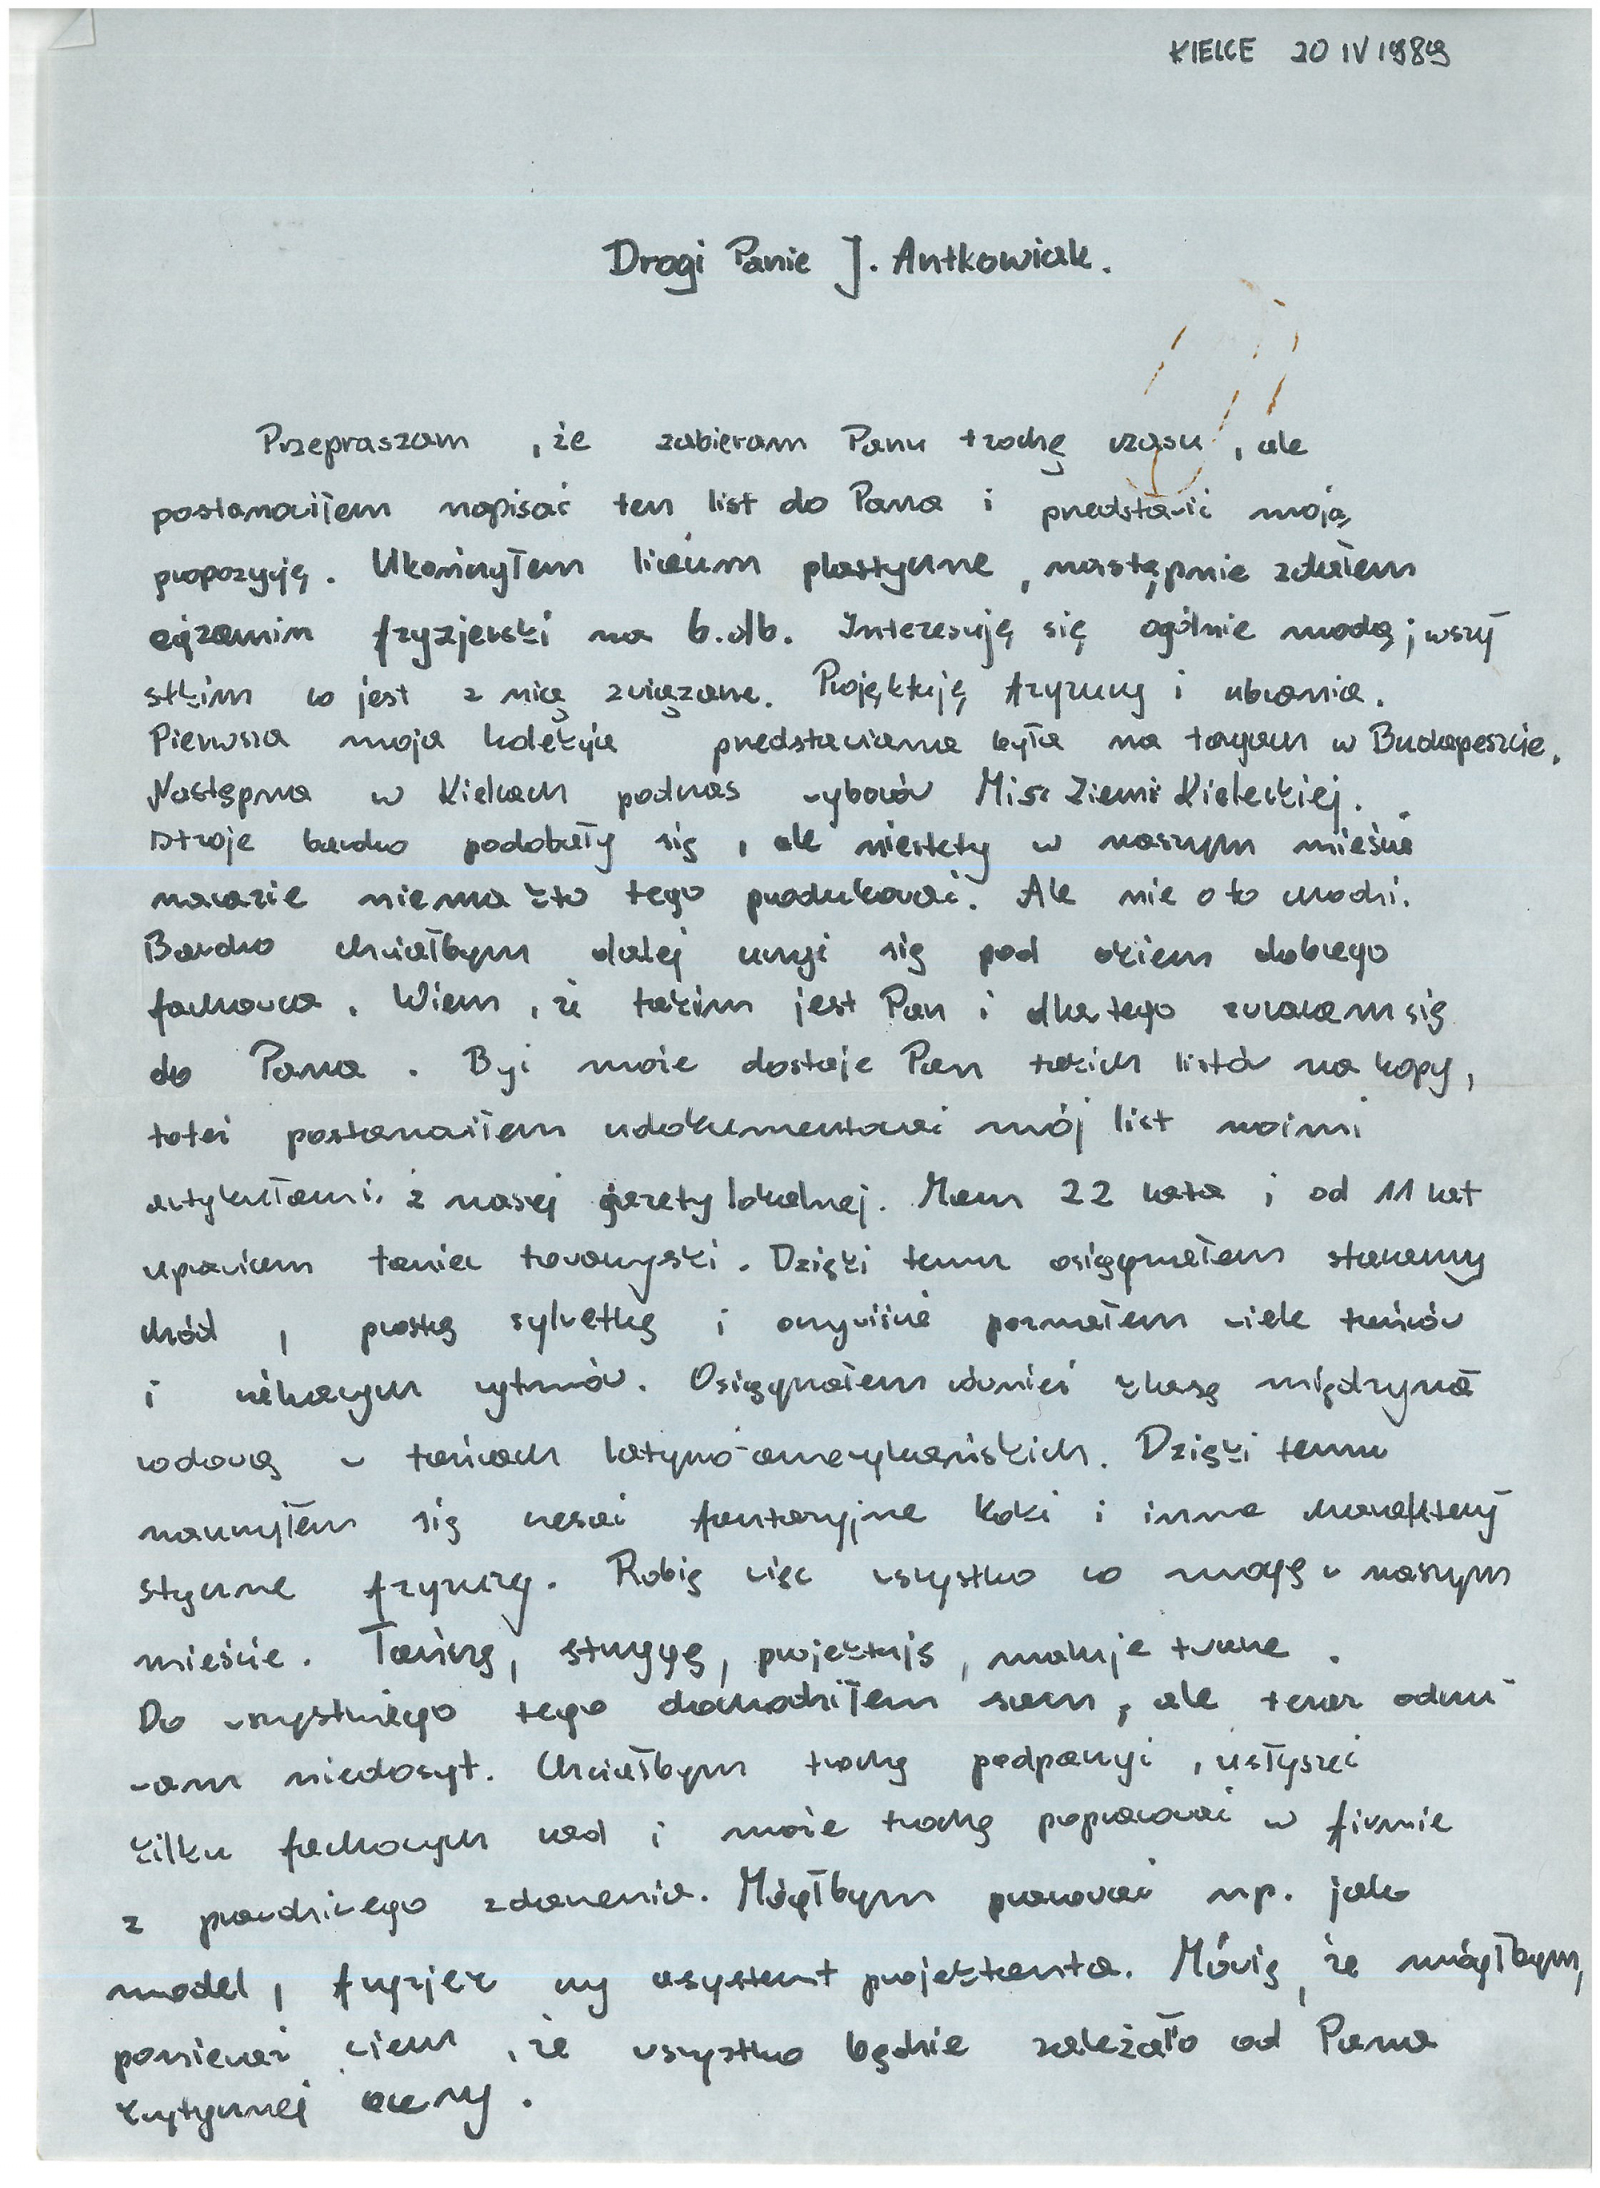 KIELCE 20 IV 1989
Drogi Panie J. Antkowiak.
Przepraszam , że zabieram Panu trochę czasu , ale
postanowiłem napisać ten list do Pana i przedstawić moją
propozycję. Ukończyłem liceum plastyczne , następnie zdałem
egzamin fryzjerski na b.db. Interesuję się ogólnie modą i wszy
stkim co jest z nią związane. Projęktuję fryzury i ubrania.
Pierwsza moja kolekcja przedstawiana była na targach w Budapeszcie.
Następna w Kielcach podczas wyborów Miss Ziemi Kieleckiej.
Stroje bardzo podobały się , ale niestety w naszym mieście
narazie niema kto tego produkować. Ale nie o to chodzi.
Bardzo chciałbym dalej uczyć się pod okiem dobrego
fachowca . Wiem , że takim jest Pan i dlatego zwracam się
do Pana . Być może dostaje Pan takich listów na kopy,
toteż postanowiłem udokumentować mój list moimi
artykułami z naszej gazety lokalnej. Mam 22 lata i od 11 lat
uprawiam taniec towarzyski . Dzięki temu osiągnąłem staranny
chód , prostą sylwetkę i oczywiście poznałem wiele tańców
i ciekawych rytmów. Osiągnąłem również klasę międzyna
rodową w tańcach latyno-amerykańskich. Dzięki temu
nauczyłem się czesać fantazyjne koki i inne charaktery
styczne fryzury. Robię więc wszystko co mogę w naszym
mieście. Tańczę, strzygę, projektuję, maluje twarze .
Do wszystkiego tego dochodziłem sam , ale teraz odczu-
wam niedosyt. Chciałbym trochę podpatrzyć , usłyszeć
kilku fachowych rad i może trochę popracować w firmie
z prawdziwego zdarzenia. Mógłbym pracować np. jako
model , fryzjer czy asystent projektanta. Mówię , że mógłbym,
ponieważ wiem , że wszystko będzie zależało od Pana
krytycznej oceny .